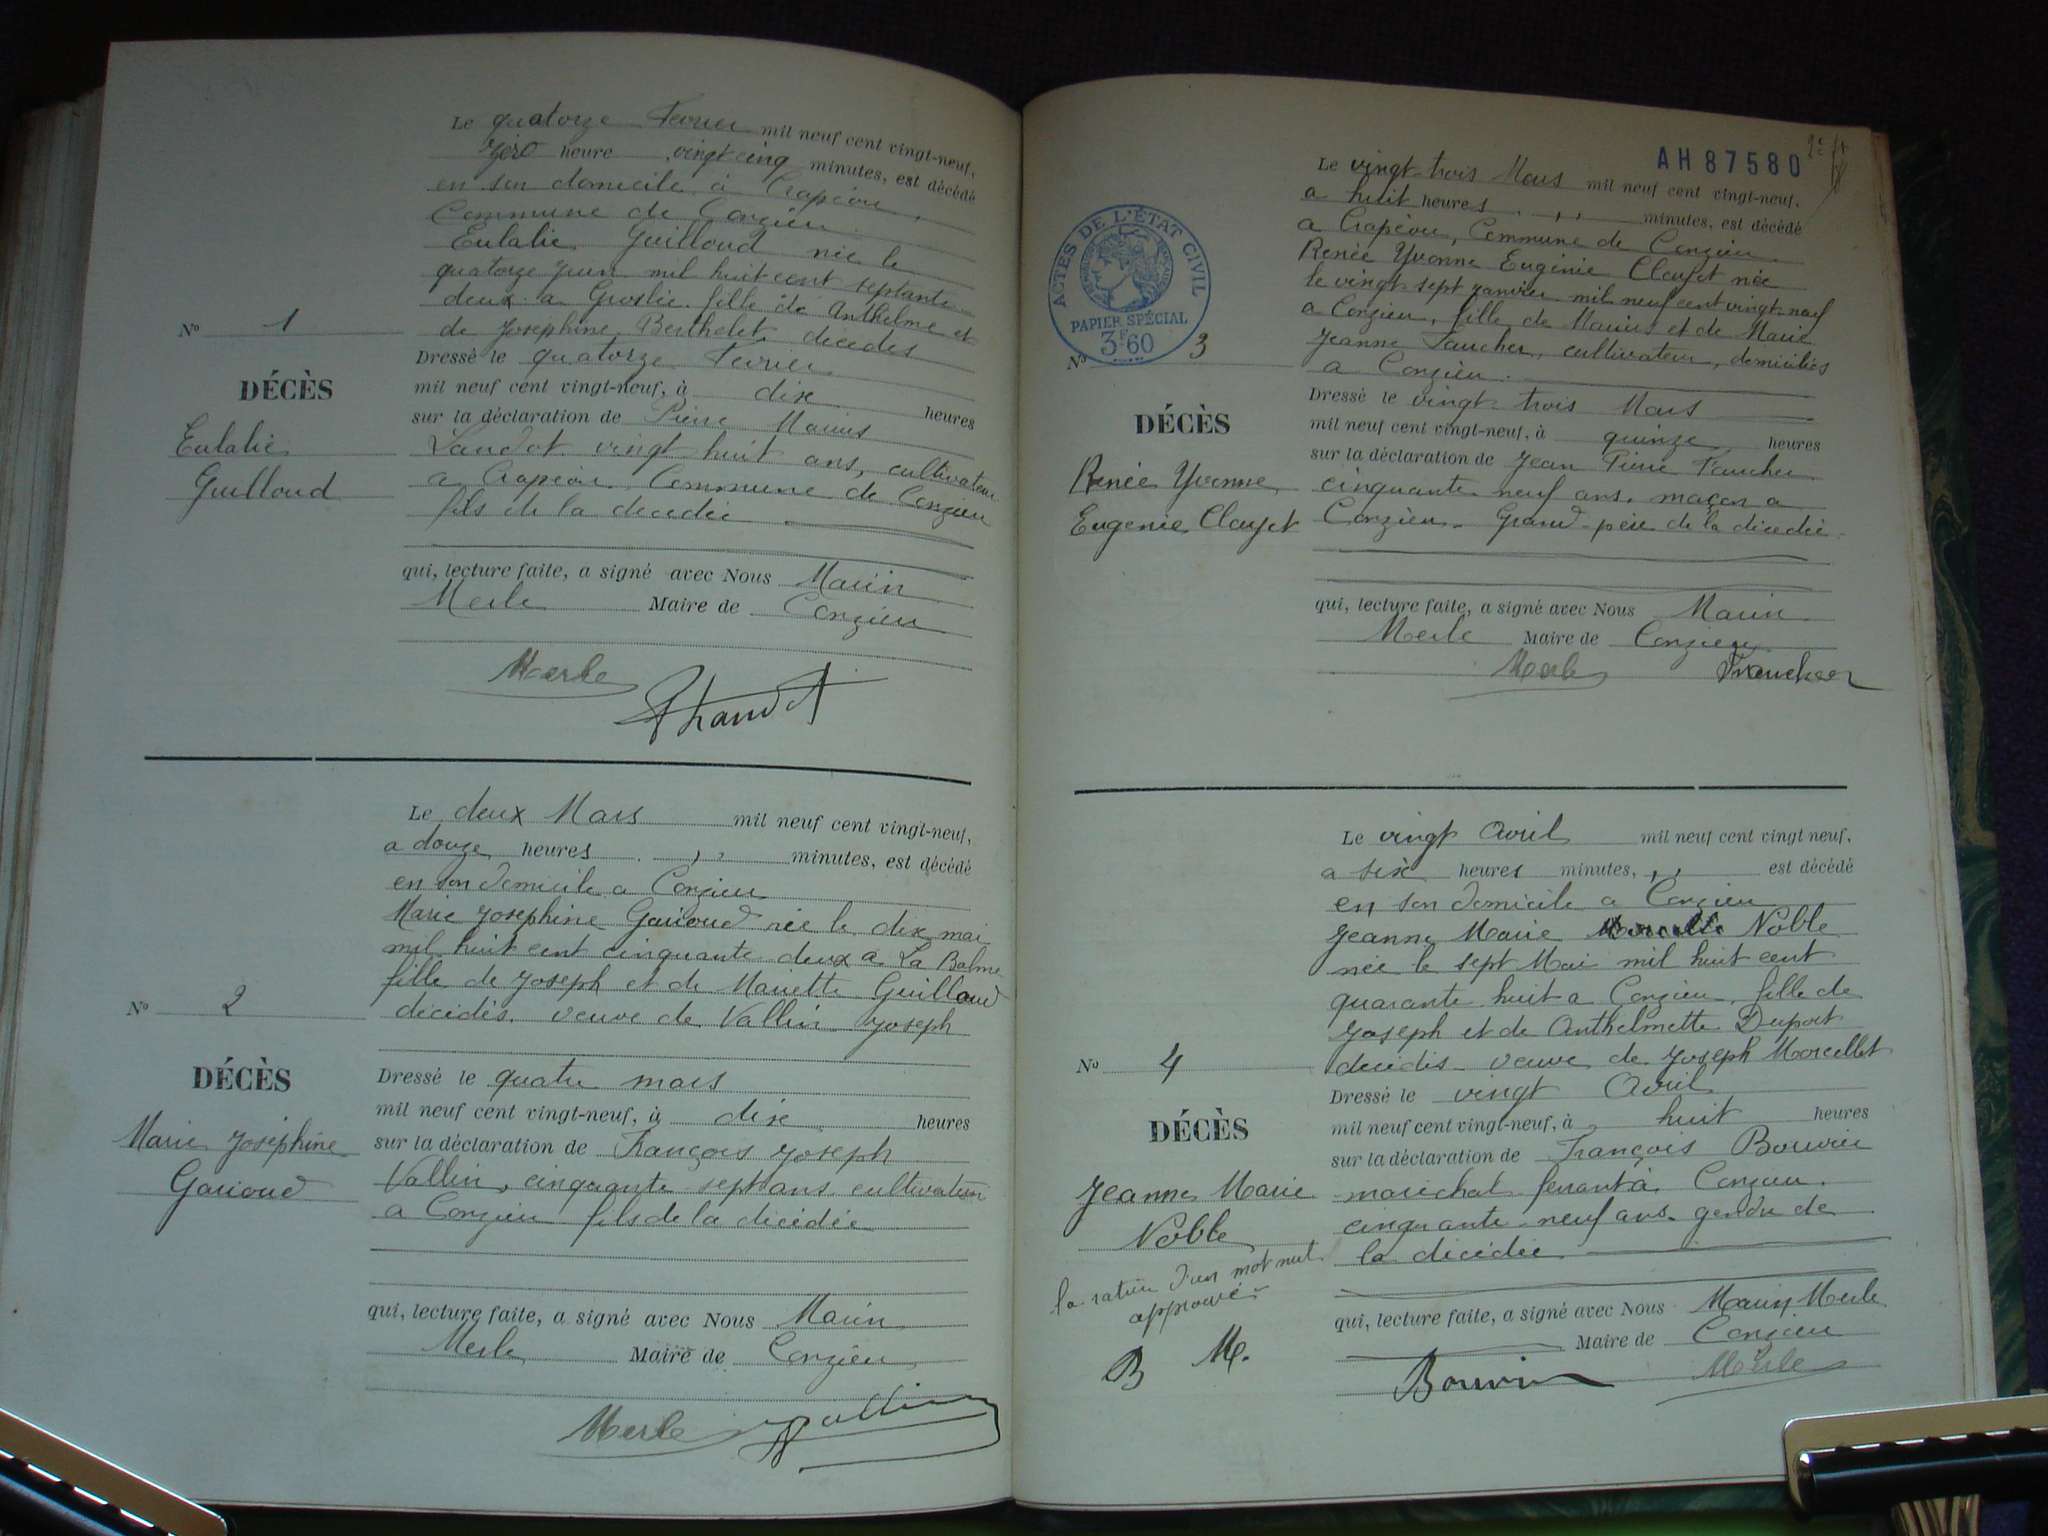 Le quatorze Fevrier mil neuf cent vingt-neuf,
zéro heure vingt cinq minutes, est décédé
en son domicile à Crapéou,
Commune de Conzieu
Eulalie Guilloud née le
quatorze Juin mil huit cent septante
deux a Groslée fille de Anthelme et
de Joséphine Berthelet décédés
Nº 1
DÉCÈS
Eulalie
Guilloud
Dressé le quatorze Fevrier
mil neuf cent vingt-neuf, à dix heures
sur la déclaration de Pierre Marius
vingt huit ans, cultivateur
a Crapéou Commune de Conzieu
fils de la décédée
qui, lecture faite, a signé avec Nous Marin
Merle Maire de Conzieu
Merle
Le deux Mars mil neuf cent vingt-neuf,
a douze heures ,, minutes, est décédé
en son domicile a Conzieu
Marie Joséphine Garioud née le dix mai
mil huit cent cinquante deux a La Balme
fille de Joseph et de Mariette Guilloud
décédés. veuve de Vallin Joseph
Nº 2
DÉCÈS
Marie Joséphine
Garioud
Dressé le quatre mars
mil neuf cent vingt-neuf, à dix heures
sur la déclaration de François Joseph
Vallin, cinquante sept ans cultivateur
a Conzieu fils de la décédée
qui, lecture faite, a signé avec Nous Marin
Merle Maire de Conzieu
Merle Vallin
AH 87580
ACTES DE L'ÉTAT CIVIL
PAPIER SPÉCIAL
3F60
Le vingt-trois Mars mil neuf cent vingt-neuf,
a huit heures ,, minutes, est décédé
a Crapéou, Commune de Conzieu
Renée Yvonne Eugénie Clayet née
le vingt-sept janvier mil neuf cent vingt-neuf
a Conzieu, fille de Marius et de Marie
Jeanne Faucher, cultivateurs, domiciliés
a Conzieu
Nº 3
DÉCÈS
Renée Yvonne
Eugénie Clayet
Dressé le vingt-trois Mars
mil neuf cent vingt-neuf, à quinze heures
sur la déclaration de Jean Pierre Faucher
cinquante neuf ans, maçon a
Conzieu. Grand-père de la décédée
qui, lecture faite, a signé avec Nous Marin
Merle Maire de Conzieu
Merle
Le vingt Avril mil neuf cent vingt neuf,
a six heures minutes, ,, est décédé
en son domicile a Conzieu
Jeanne Marie Noble
née le sept Mai mil huit cent
quarante huit a Conzieu, fille de
Joseph et de Anthelmette Duport
décédés veuve de Joseph Morcellet
Nº 4
DÉCÈS
Jeanne Marie
Noble
la rature d'un mot nul
approuvé
B M.
Dressé le vingt Avril
mil neuf cent vingt-neuf, à huit heures
sur la déclaration de François Bouvier
maréchal ferrant à Conzieu
cinquante-neuf ans. gendre de
la décédée
qui, lecture faite, a signé avec Nous Marin Merle
Maire de Conzieu
Bouvier Merle